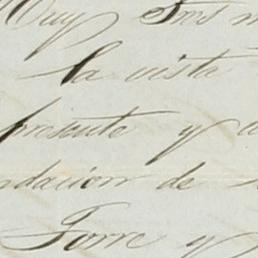 Muy Sres m
la vista
presente y a
ndacion de
Torre y